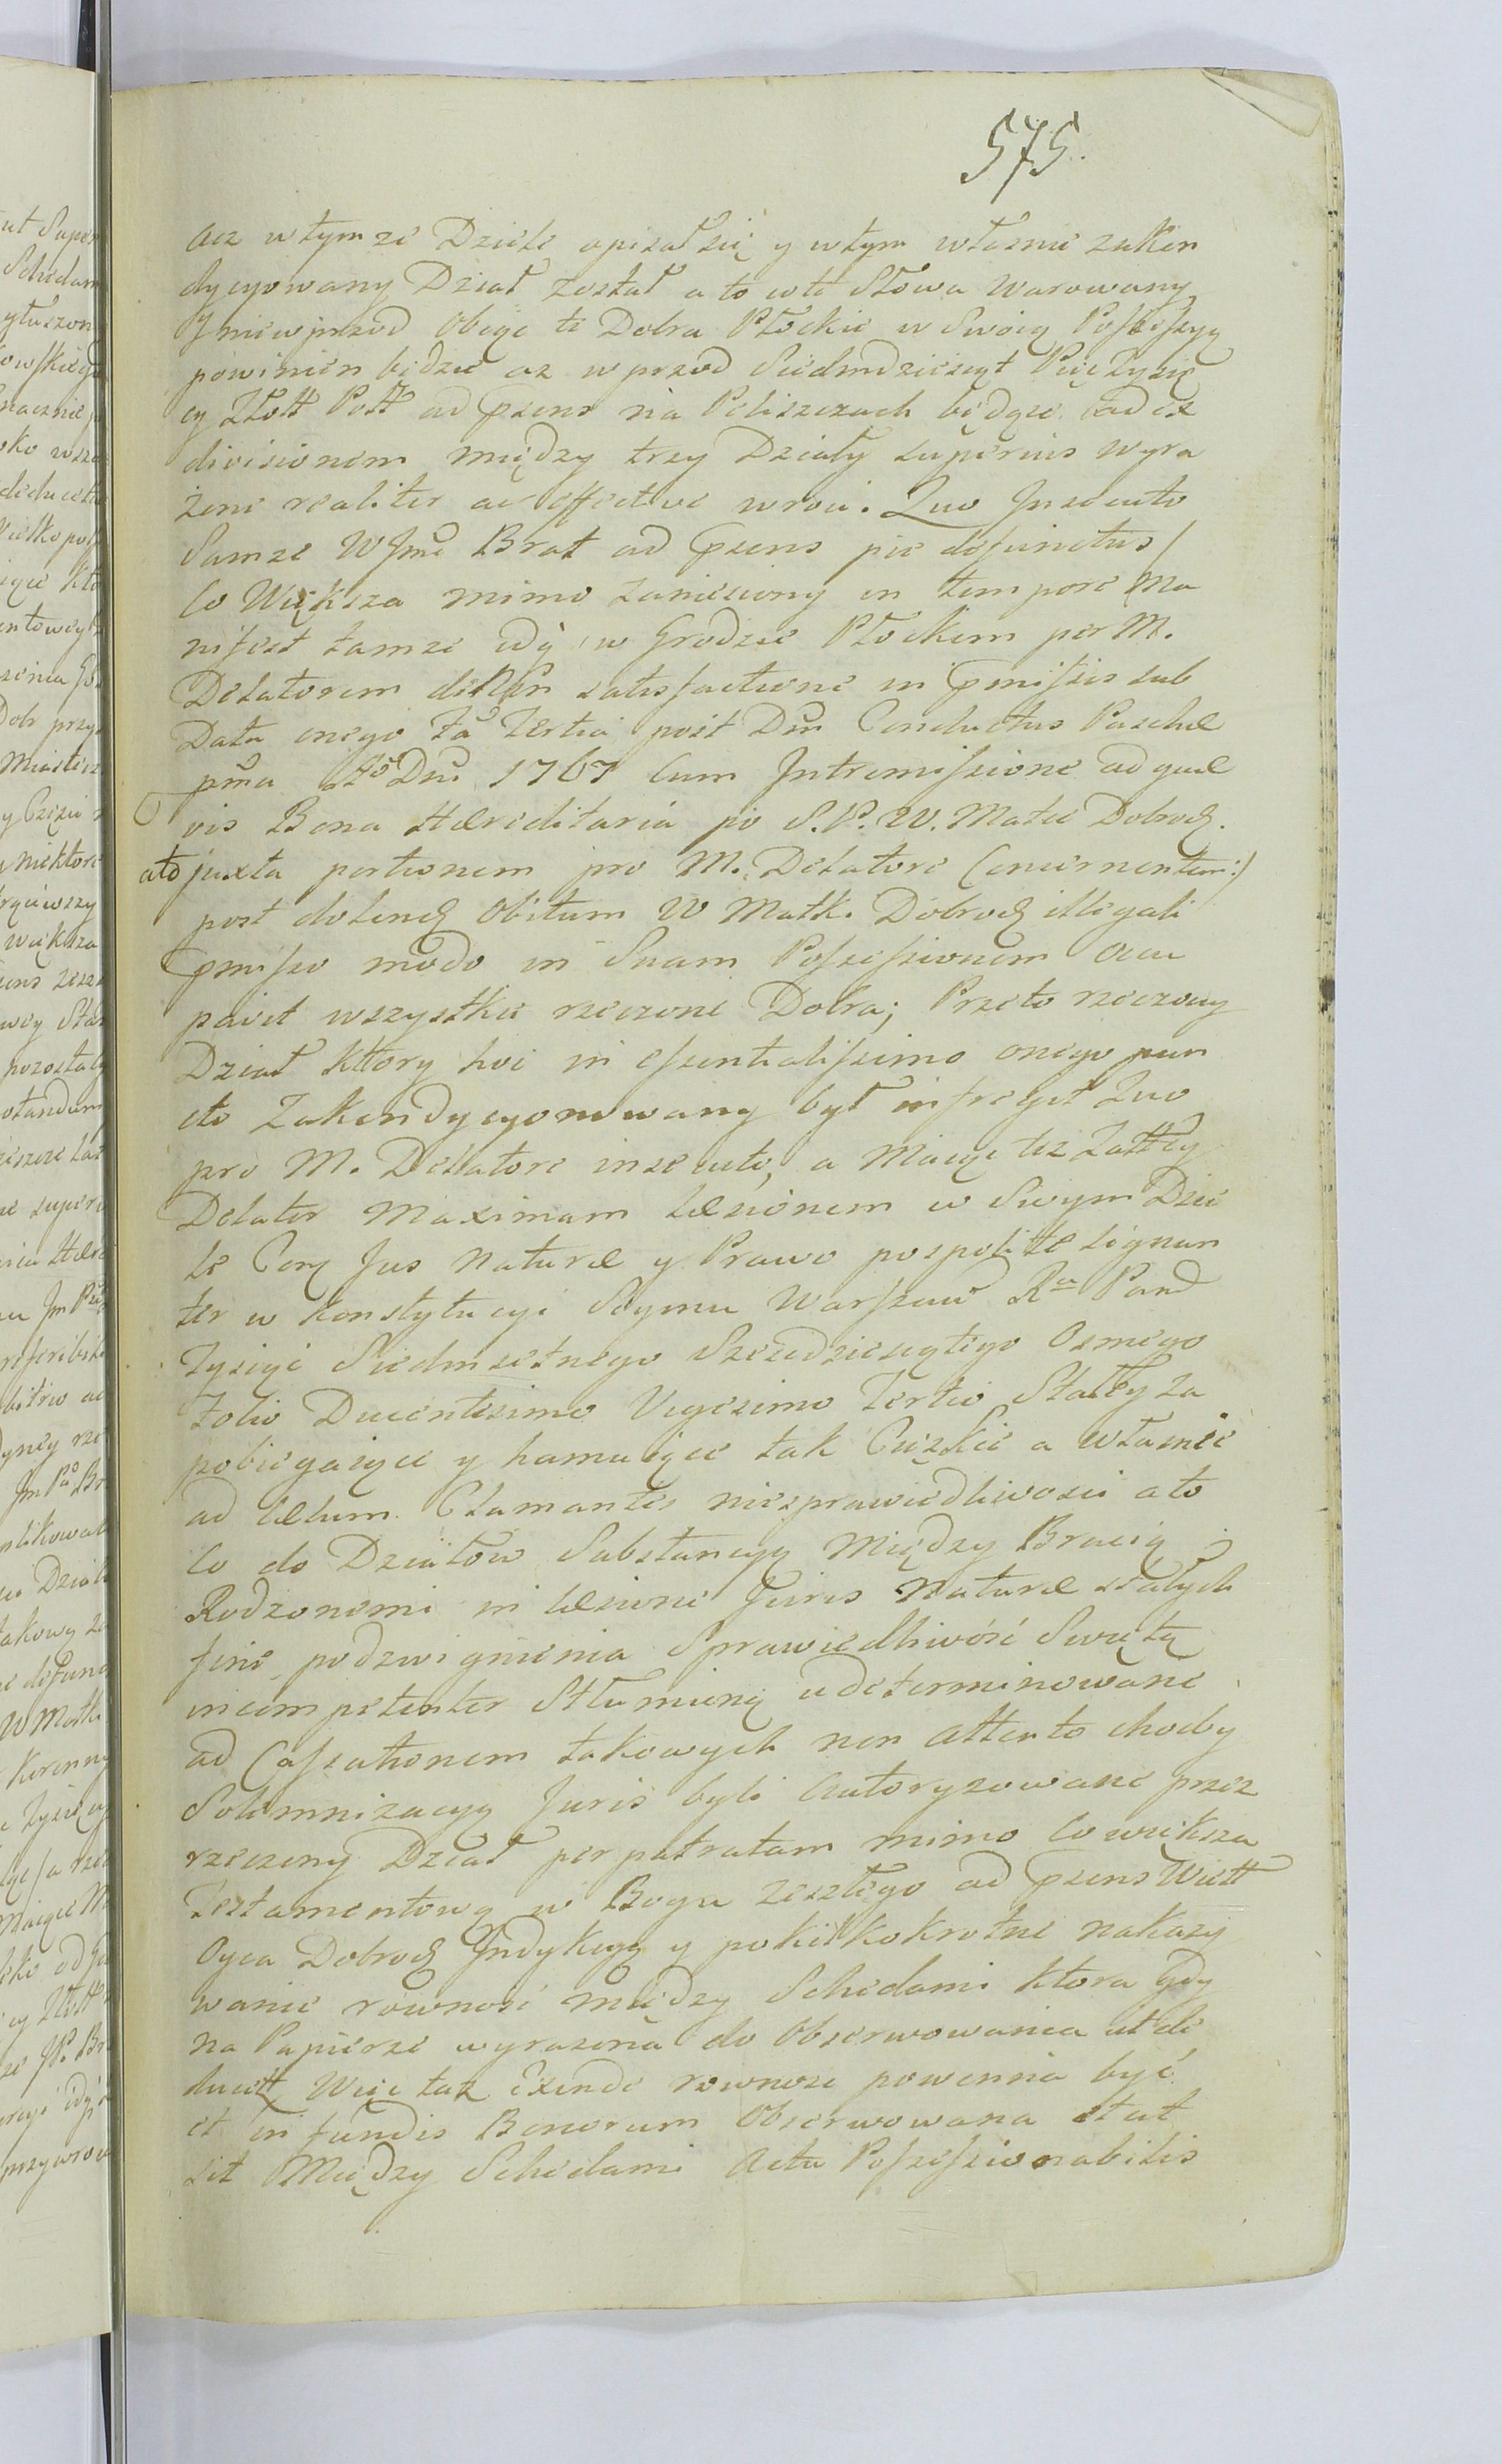 575.
acz w tymże Dziele opisał się y w tym własnie zakon
dycyowany Dział został a to w te Słowa Warowany
J nie wprzod Obiąc te Dobra Płockie w Swoię Possessyą
powinien będzie az wprzod Siedmdziesiąt Pięc Tysię
cy Złott Poll ad psens na Peliszczach będące ad ex
divisionem między trzy Działy superius wyra
żone realiter ac effective wroci. Quo Insecuto
Samże WJmc Brat ad psens pie defunctus /
Co Większa mimo zaniesiony in tempore Ma
nifest tamże idq w Grodzie Płockim per M.
Delatorem de non satisfactione in pmissis sub
Data onego Fa Tertia post Dm Conductus Paschæ
pma Ao Dni 1767 Cum Intromissione ad quæ
vis Bona Hæreditaria po S. P. W. Matce Dobrodz.
ato juxta portionem pro M. Delatore Concernentem:/
post dolendz Obitum W Matk. Dobrodz illegali
pmisso modo in Suam Possessionem Occu
pavit wszystkie rzeczone Dobra; Przeto rzeczony
Dział ktory hoc in essentialissimo onego pun
cto Zakondycyonowany był infregit Quo
pro M. Delatore insecuto, a Maiąc też Załłcy
Delator Maximam Læsionem w Swym Dzie
le Contra Jus Naturæ y Prawo pospolite signan
ter w Konstytucyi Seymu Warszaw Ru Pand
Tysiąc Siedmsetnego Szescdziesiątego Osmego
Folio Ducentesimo Vigesimo Tertio Stałłey za
pobiegaiące y hamuiące tak Cięzkie a własnie
ad Cælum Clamantes niesprawiedliwosci a to
Co do Działow Substancyy Między Bracią
Rodzonemi in læsione Juris Naturæ stałych
fine podzwignienia Sprawiedliwość Swiętą
incompetenter Stłumioną udeterminowane
ad Cassationem takowych non attento choćby
Solemnizacyą Juris byli Autoryzowane przez
rzeczony Dział perpatratam mimo Co większa
Testamentową w Bogu zeszłego ad psens Wiell
Oyca Dobrodz Indykcyą y pokilkokrotne nakazy
wanie rowność między Schedami ktora gdy
na Papierze wyrażona do Obserwowania ut de
ducett Więc taż Exinde rownosc powinna być
et in fundis Bonorum Obserwowana et ut
sit Między Schedami Actu Possessionabilis